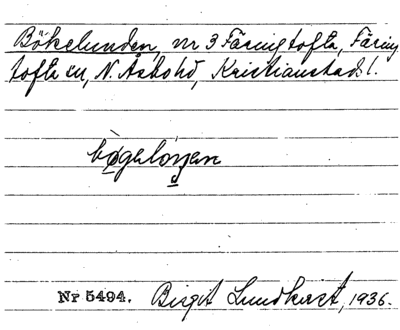 Bökelunden, nr 3 Färingtofta, Färing
tofta sn, N. Åsbo hd, Kristianstads l.
bøgelonen
Nr 5494. Birgit Lundkvist, 1936.